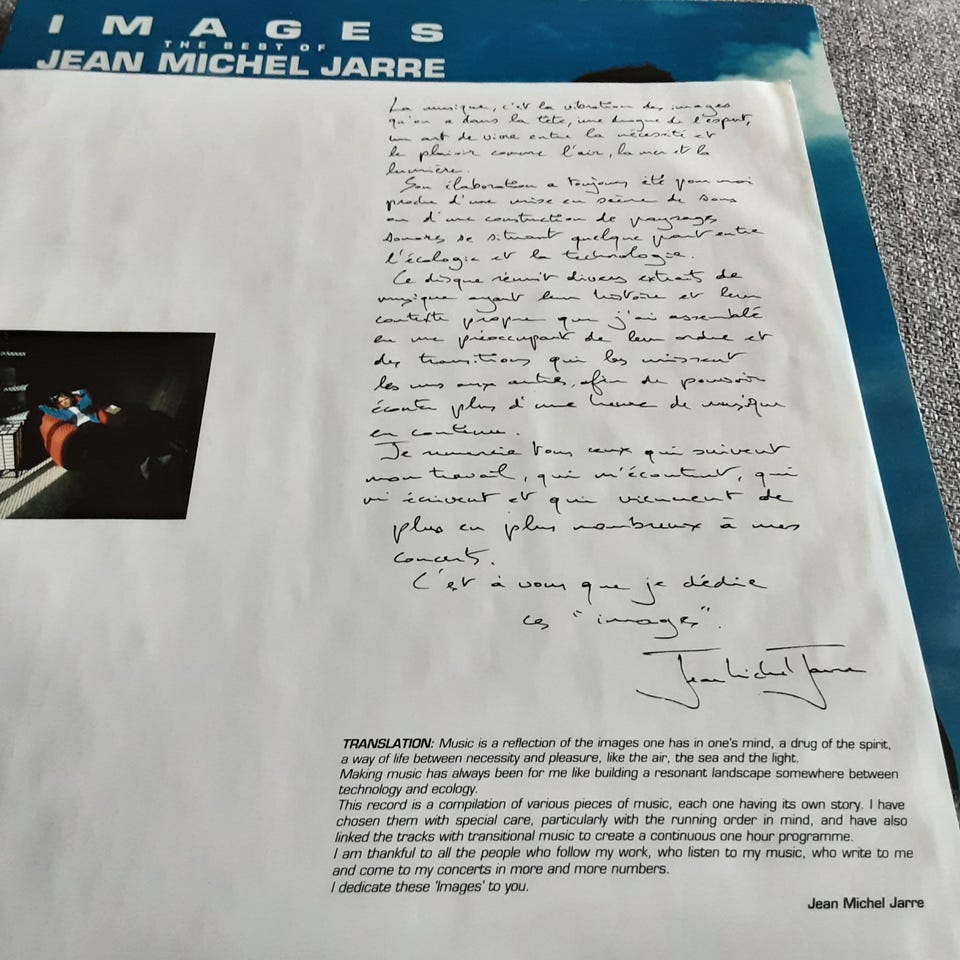 IMAGES
THE BEST OF
JEAN MICHEL JARRE
La musique, c'est la vibration des images
qu'on a dans la tête, une drogue de l'esprit,
un art de vivre entre la nécessité et
le plaisir comme l'air, la mer et la
lumière.
Son élaboration a toujours été pour moi
proche d'une mise en scène de sons
ou d'une construction de paysages
sonores se situant quelque part entre
l'écologie et la technologie.
Ce disque réunit divers extraits de
musique ayant leur histoire et leur
contexte propre que j'ai assemblé
en me préoccupant de leur ordre et
des transitions qui les unissent
les uns aux autres, afin de pouvoir
écouter plus d'une heure de musique
en continu.
Je remercie tous ceux qui suivent
mon travail, qui m'écoutent, qui
m'écrivent et qui viennent de
plus en plus nombreux à mes
concerts.
C'est à vous que je dédie
ces "images".
Jean Michel Jarre
TRANSLATION: Music is a reflection of the images one has in one's mind, a drug of the spirit,
a way of life between necessity and pleasure, like the air, the sea and the light.
Making music has always been for me like building a resonant landscape somewhere between
technology and ecology.
This record is a compilation of various pieces of music, each one having its own story. I have
chosen them with special care, particularly with the running order in mind, and have also
linked the tracks with transitional music to create a continuous one hour programme.
I am thankful to all the people who follow my work, who listen to my music, who write to me
and come to my concerts in more and more numbers.
I dedicate these 'Images' to you.
Jean Michel Jarre